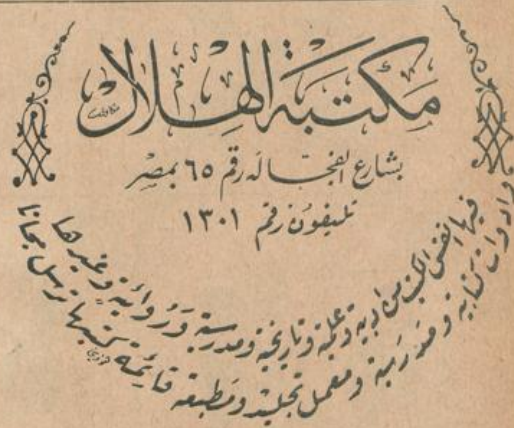 مكتبة الهلال
بشارع الفجاله رقم ٦٥ بمصر
تليفون رقم ١٣٠١
فيها انفس الكتب من ادبية وعلمية وتاريخية ومدرسية وروائية وغيرها
وادوات كتابية ومدرسية ومعمل تجليد ومطبعه قائمة كتبها ترسل مجانا